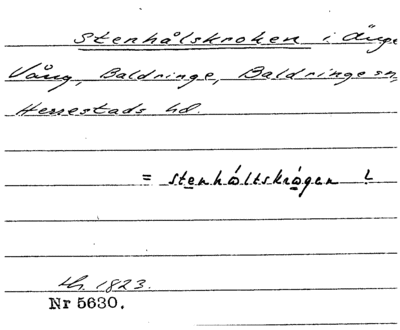 Stenhålskroken i Änga
Vång, Baldringe, Baldringe sn,
Herrestads hd.
= stenhóltskrógen !
1823.
Nr 5630.